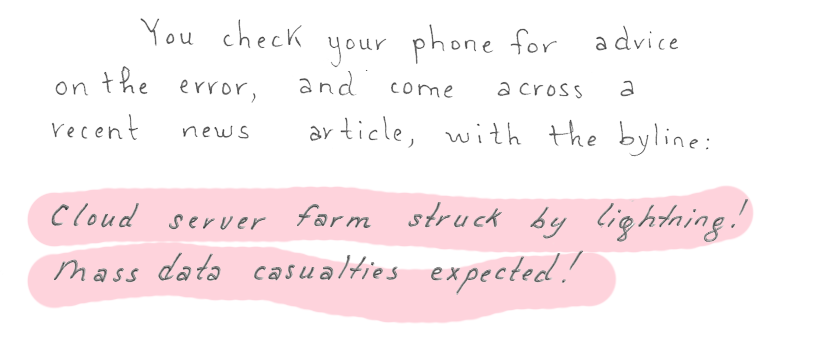 You check your phone for advice
on the error, and come across a
recent news article, with the byline:
Cloud server farm struck by lightning!
Mass data casualties expected!